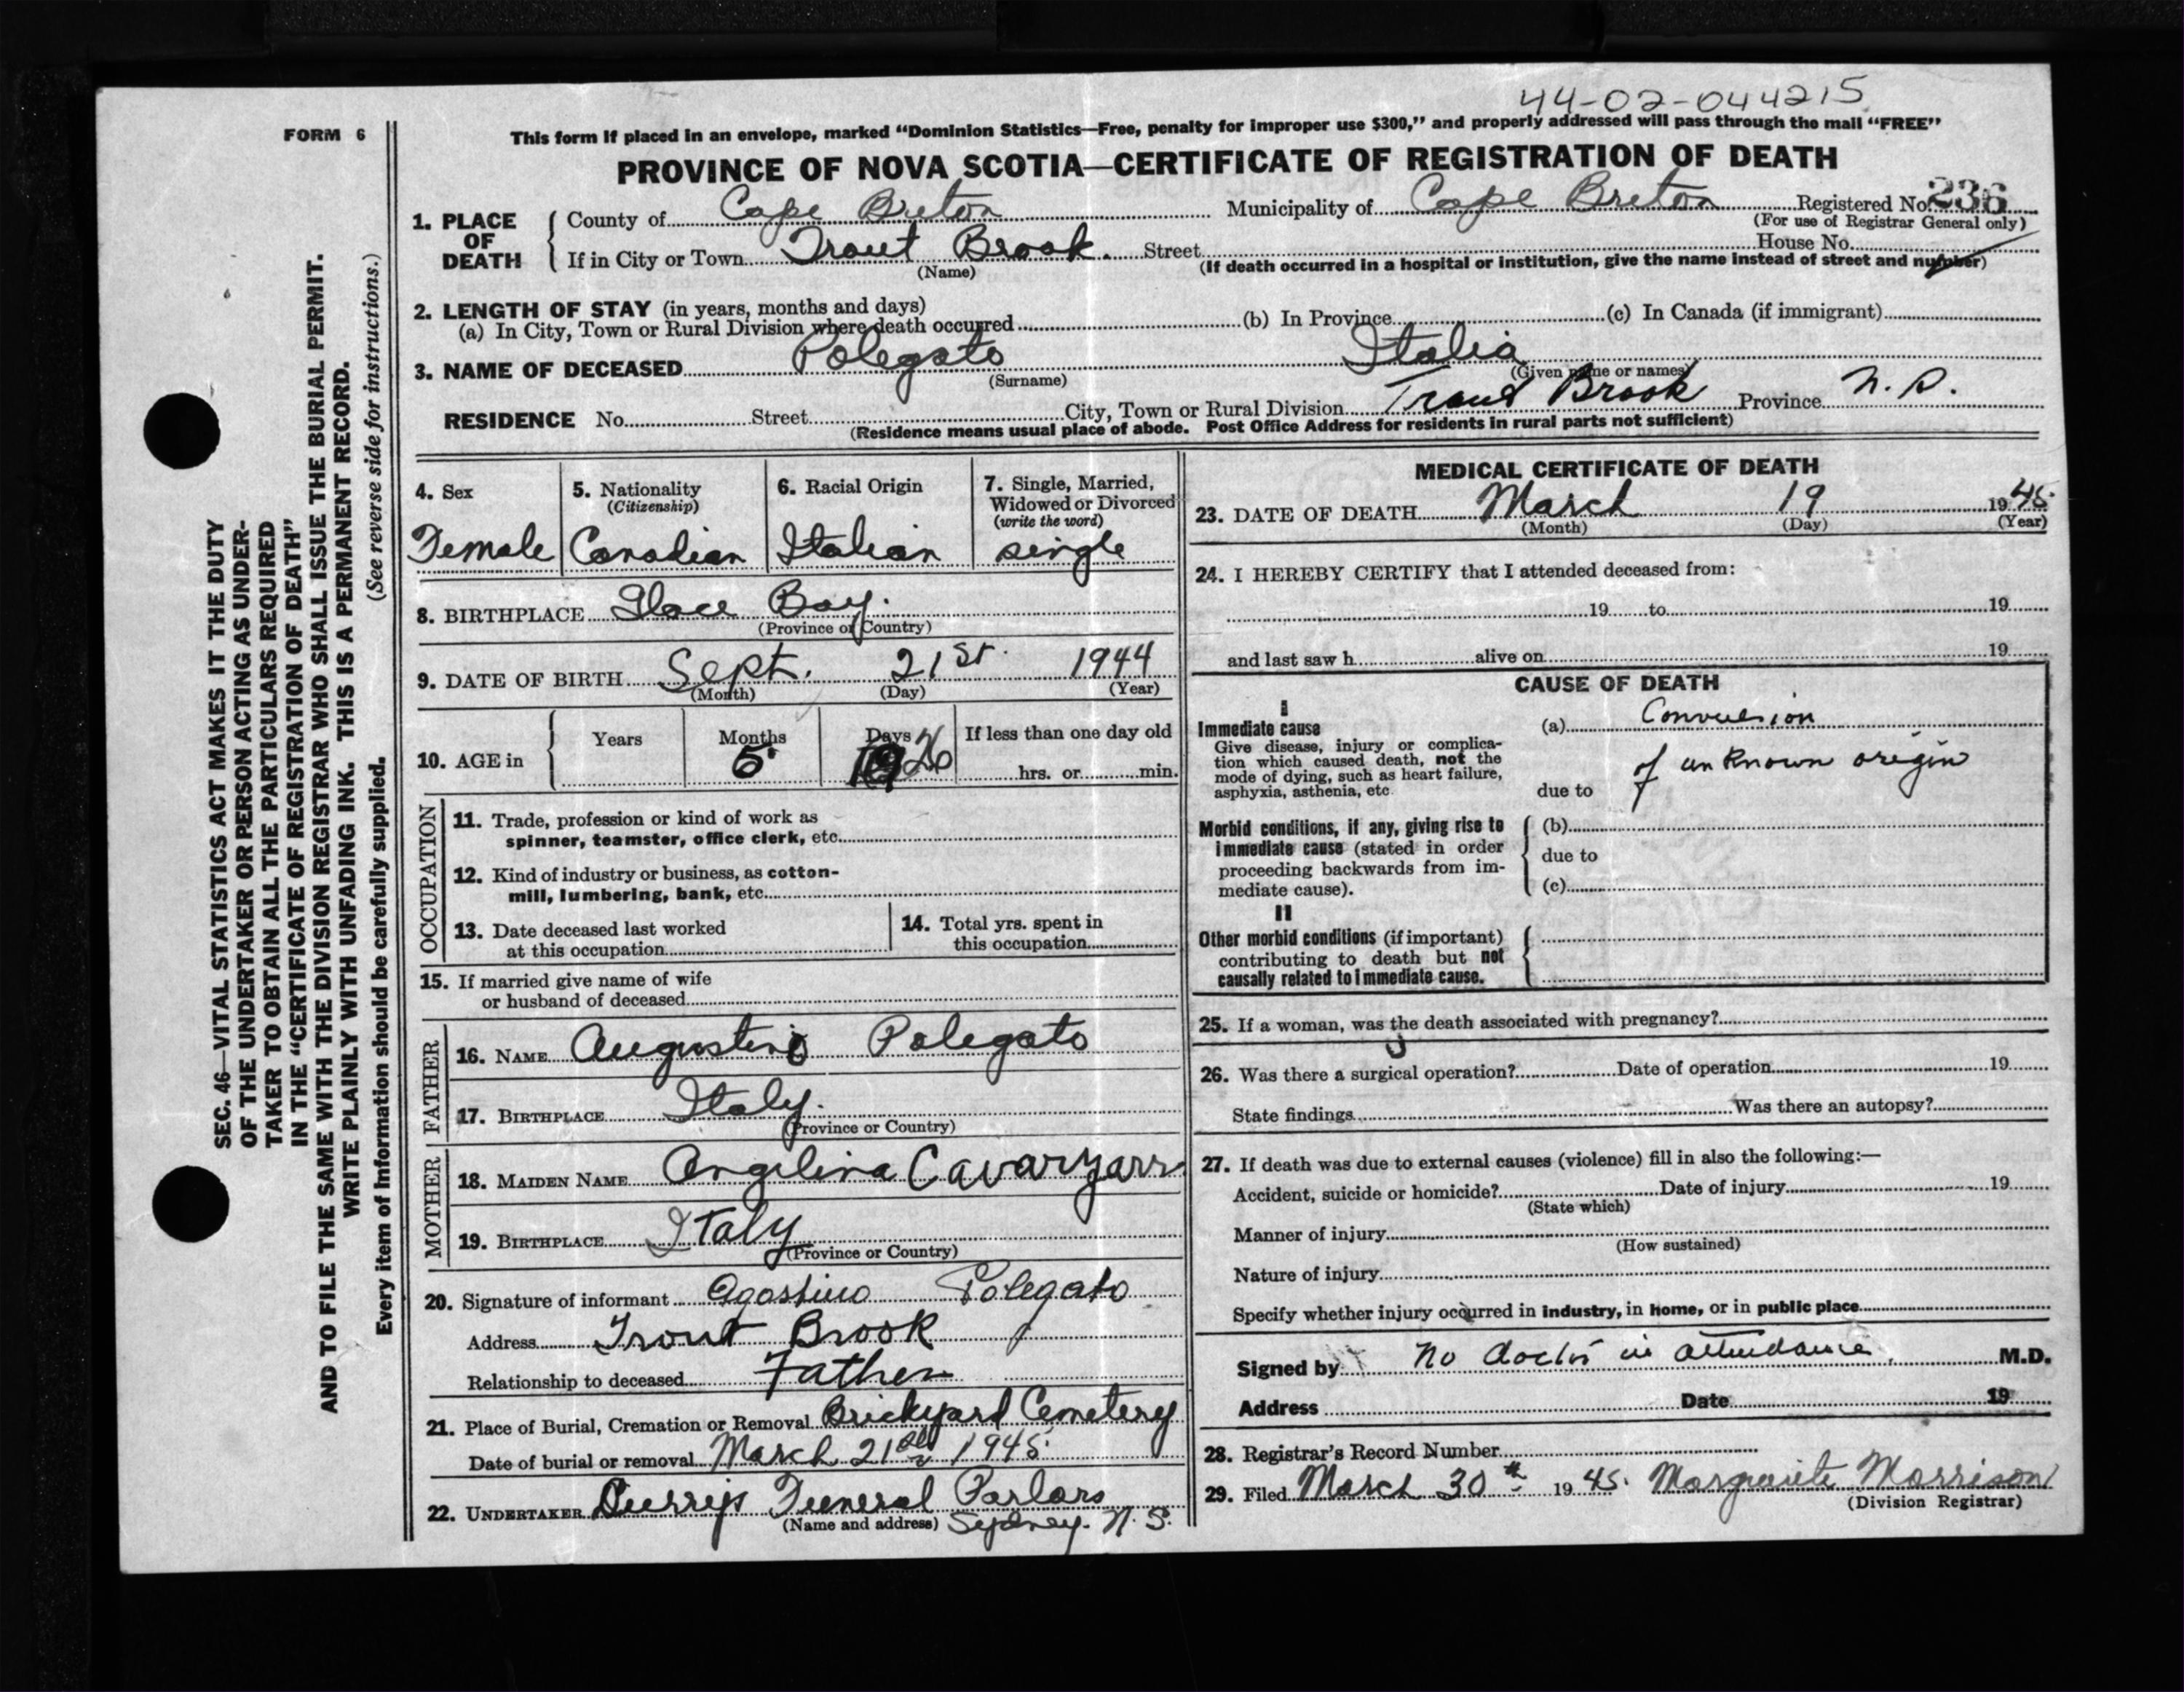 44-02-044215
FORM 6
This form if placed in an envelope, marked “Dominion Statistics—Free, penalty for improper use $300,” and properly addressed will pass through the mail “FREE”
PROVINCE OF NOVA SCOTIA—CERTIFICATE OF REGISTRATION OF DEATH
SEC. 46—VITAL STATISTICS ACT MAKES IT THE DUTY
OF THE UNDERTAKER OR PERSON ACTING AS UNDER-
TAKER TO OBTAIN ALL THE PARTICULARS REQUIRED
IN THE “CERTIFICATE OF REGISTRATION OF DEATH”
AND TO FILE THE SAME WITH THE DIVISION REGISTRAR WHO SHALL ISSUE THE BURIAL PERMIT.
WRITE PLAINLY WITH UNFADING INK. THIS IS A PERMANENT RECORD.
Every item of information should be carefully supplied. (See reverse side for instructions.)
1. PLACE OF DEATH
County of Cape Breton Municipality of Cape Breton Registered No. 236
(For use of Registrar General only)
If in City or Town Trout Brook. Street House No.
(Name) (If death occurred in a hospital or institution, give the name instead of street and number)
2. LENGTH OF STAY (in years, months and days)
(a) In City, Town or Rural Division where death occurred (b) In Province (c) In Canada (if immigrant)
3. NAME OF DECEASED Polegato Italia
(Surname) (Given name or names)
RESIDENCE No. Street City, Town or Rural Division Trout Brook Province N.S.
(Residence means usual place of abode. Post Office Address for residents in rural parts not sufficient)
4. Sex
Female
5. Nationality
(Citizenship)
Canadian
6. Racial Origin
Italian
7. Single, Married,
Widowed or Divorced
(write the word)
single
8. BIRTHPLACE Glace Bay.
(Province or Country)
9. DATE OF BIRTH Sept. 21st. 1944
(Month) (Day) (Year)
10. AGE in Years Months Days If less than one day old
5 26 hrs. or min.
OCCUPATION
11. Trade, profession or kind of work as
spinner, teamster, office clerk, etc.
12. Kind of industry or business, as cotton-
mill, lumbering, bank, etc.
13. Date deceased last worked
at this occupation
14. Total yrs. spent in
this occupation
15. If married give name of wife
or husband of deceased
FATHER
16. NAME Augustino Polegato
17. BIRTHPLACE Italy.
(Province or Country)
MOTHER
18. MAIDEN NAME Angelina
19. BIRTHPLACE Italy
(Province or Country)
20. Signature of informant Agostino Polegato
Address Trout Brook
Relationship to deceased Father
21. Place of Burial, Cremation or Removal Brickyard Cemetery
Date of burial or removal March 21st 1945.
22. UNDERTAKER Funeral Parlors
(Name and address) Sydney. N.S.
MEDICAL CERTIFICATE OF DEATH
23. DATE OF DEATH March 19 1945.
(Month) (Day) (Year)
24. I HEREBY CERTIFY that I attended deceased from:
19 to 19
and last saw h alive on 19
CAUSE OF DEATH
I
Immediate cause (a) Convulsion
Give disease, injury or complica-
tion which caused death, not the
mode of dying, such as heart failure,
asphyxia, asthenia, etc.
due to of unknown origin
Morbid conditions, if any, giving rise to
immediate cause (stated in order
proceeding backwards from im-
mediate cause).
(b)
due to
(c)
II
Other morbid conditions (if important)
contributing to death but not
causally related to immediate cause.
25. If a woman, was the death associated with pregnancy?
26. Was there a surgical operation? Date of operation 19
State findings Was there an autopsy?
27. If death was due to external causes (violence) fill in also the following:—
Accident, suicide or homicide? Date of injury 19
(State which)
Manner of injury
(How sustained)
Nature of injury
Specify whether injury occurred in industry, in home, or in public place
Signed by No doctor in attendance. M.D.
Address Date 19
28. Registrar's Record Number
29. Filed March 30th 1945. Marguerite Morrison
(Division Registrar)